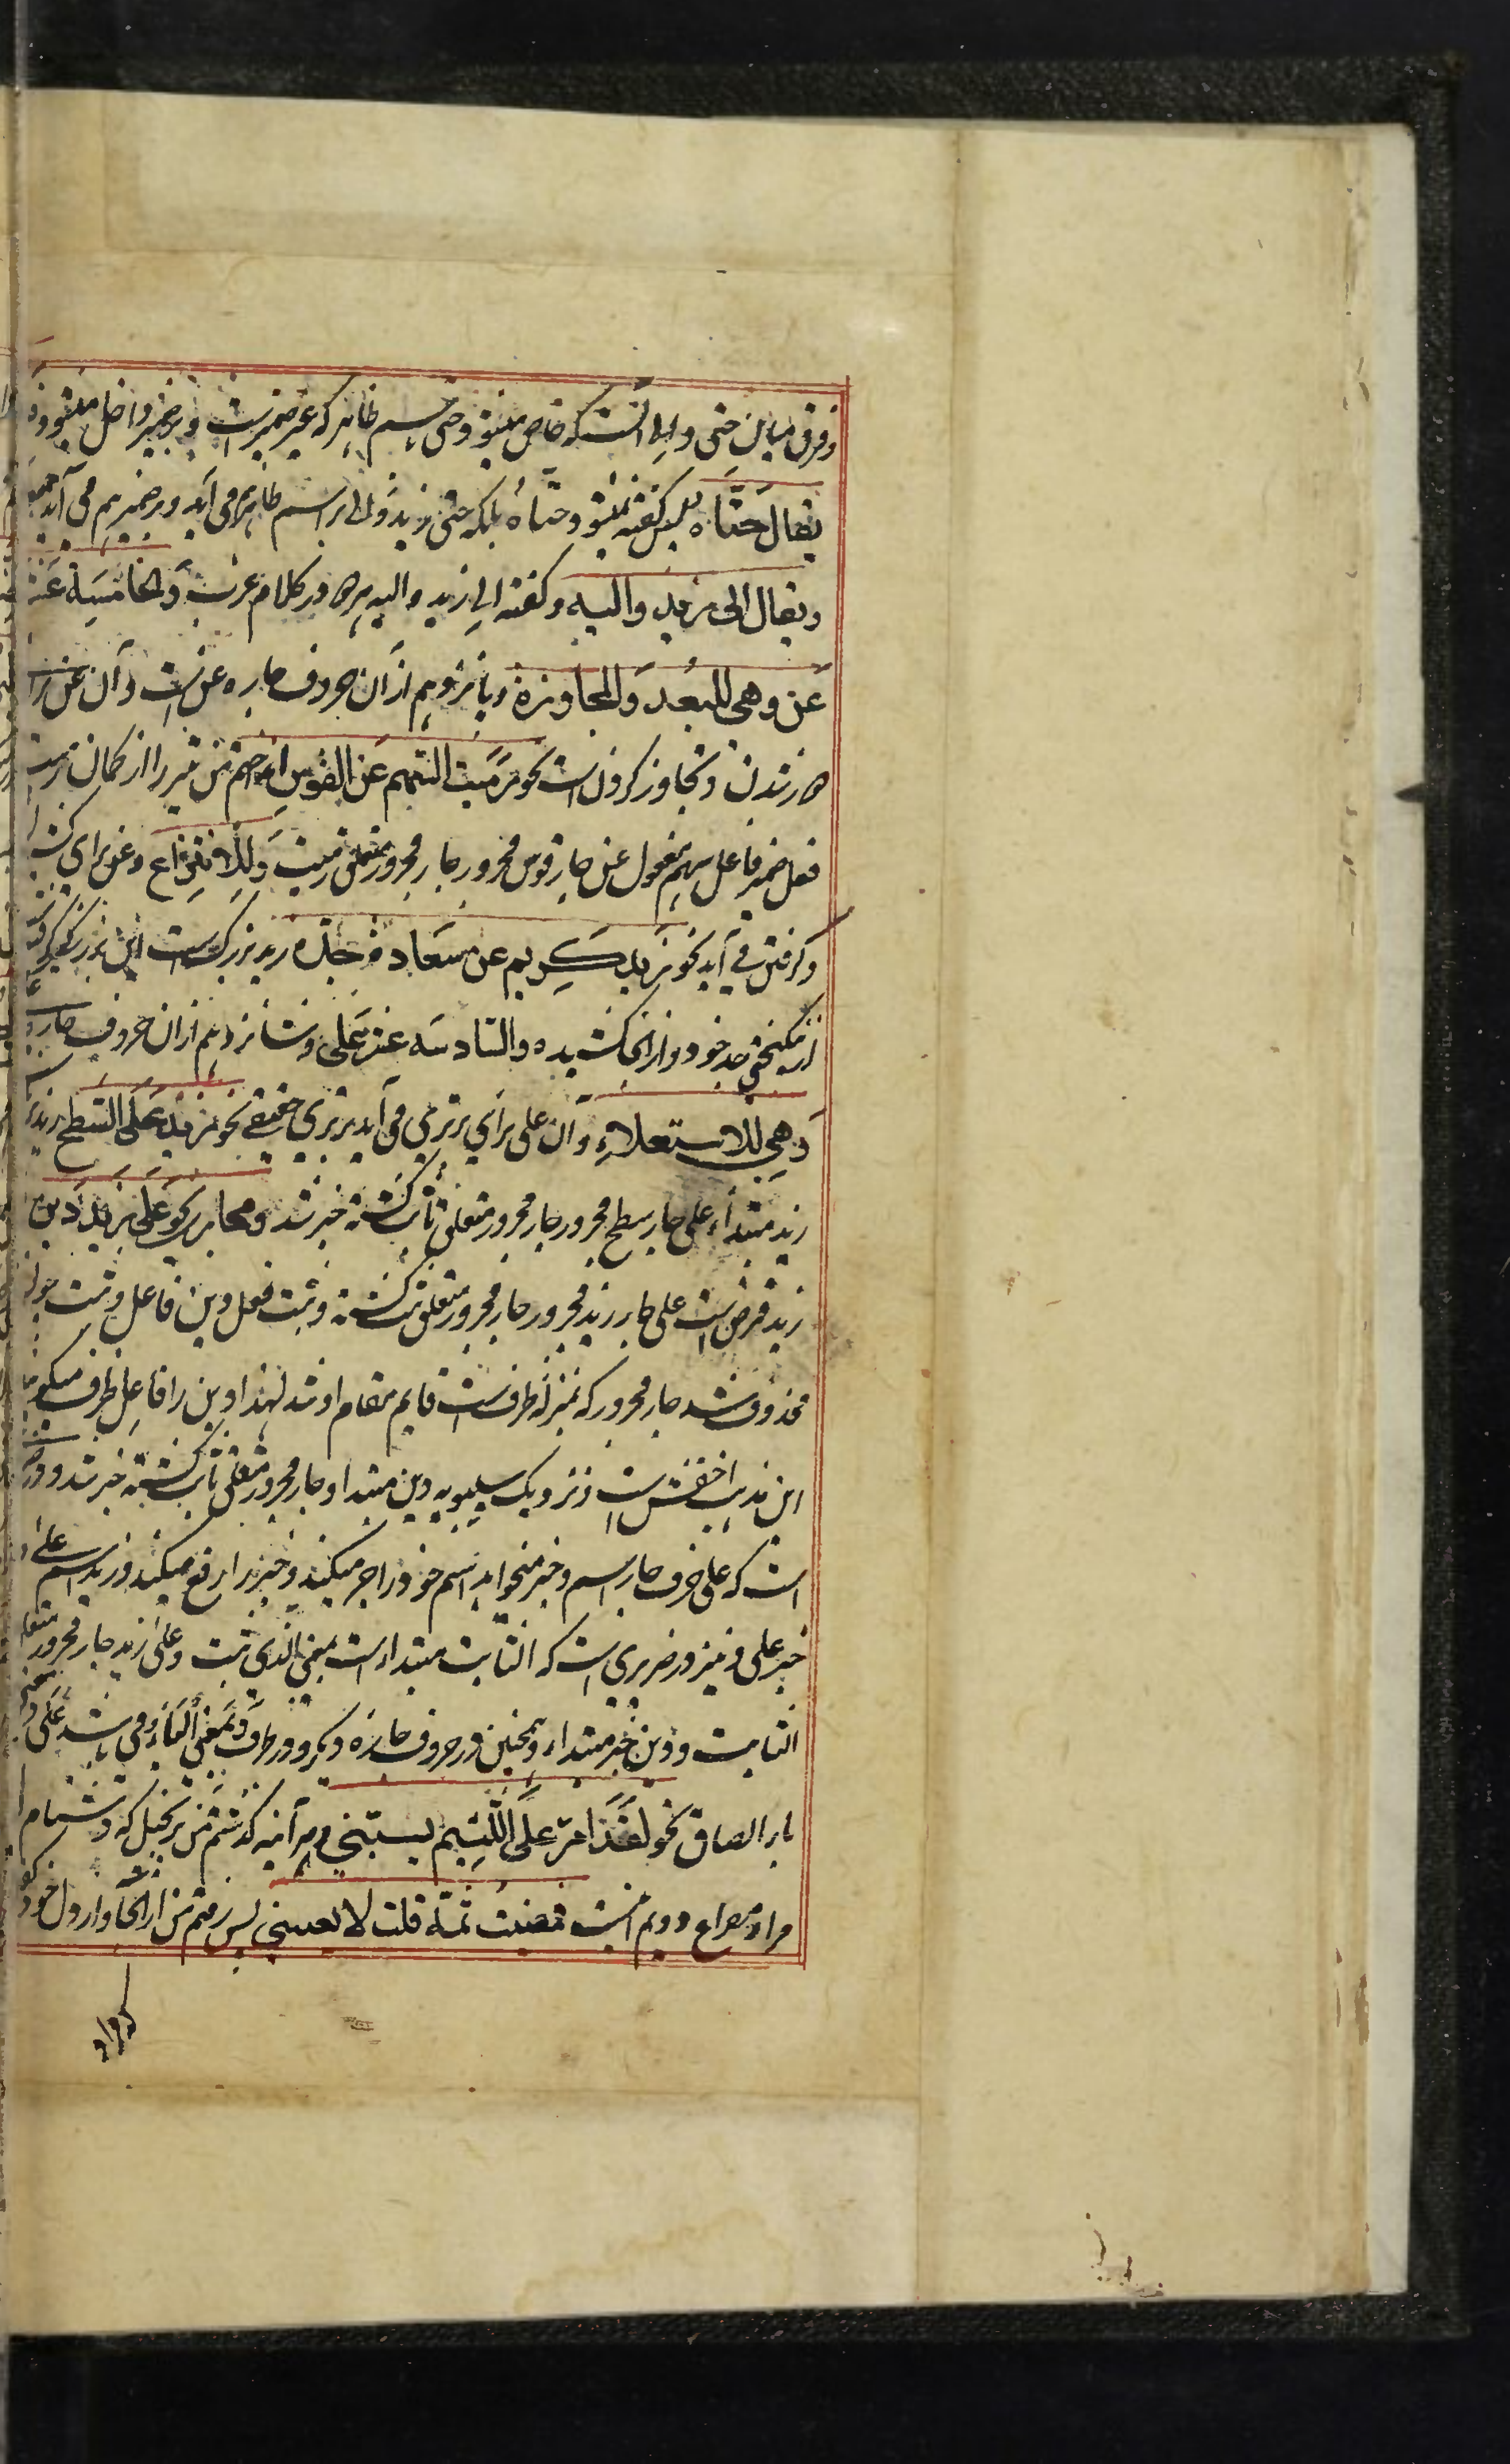 وفرق میان حتی والی آنست که خاص میشود حتی باسم ظاهر که غیر ضمیرست و بر ضمیر داخل میشود
یقال حتاه پس گفته نمیشود حتاه بلکه حتی زید والی بر اسم ظاهر می آید و بر ضمیر هم می آید
ویقال الی زید والیه و گفته الی زید والیه هر دو در کلام عرب والخامسة عشر
عن وهی للبعد والمجاوزة و پانزدهم از آن حروف جاره عن ست و آن عن برا
دور شدن و تجاوز کردن است نحو رمیت السهم عن القوس انداختم من تیر را از کمان رمیت
فعل ضمیر فاعل سهم مفعول عن جار قوس مجرور جار مجرور متعلق رمیت وللانتزاع وعن برای کشیدن
و گرفتن می آید نحو زید کریم عن سعادة جده زید بزرگ ست این بزرگی گرفته
از نیکبختی جد خود و از آنجا کشیده والسادسه عشر علی و شانزدهم از آن حروف جاره
وهی للاستعلاء و آن علی برای برتری می آید برتری حقیقی نحو زید علی السطح زید
زید مبتداء علی جار سطح مجرور جار مجرور متعلق ثابت گشته خبر شد ومجازی نحو علی زید دین
زید قرض است علی جار زید مجرور جار مجرور متعلق ثبت گشته و ثبت فعل دین فاعل و ثبت چون
محذوف شد جار مجرور که بمنزله ظرفست قایم مقام او شد لهذا دین را فاعل ظرف میگویند
این مذهب اخفش است و نزدیک سیبویه دین مبتدا و جار مجرور متعلق ثابت گشته خبر شد و
است که علی حرف جار اسم و خبر میخواهد اسم خود را جر میکند و خبر را رفع میکند و زید اسم علی و
خبر علی و نیز در ضریری است که الثابت مبتداء است بمعنی الذی ثبت و علی زید جار مجرور متعلق
الثابت و دین خبر مبتداء و همچنین در حروف جاره دیگر و در ظرف وبمعنی الباء و می باشد علی
باء الصاق نحو لقد امر علی اللئیم یسبنی هر آئینه گذشتم من بر بخیل که دشنام
مراد مصراع دویم اینست فمضیت ثمة قلت لا یعنینی پس رفتم من از آنجا و از دل خود